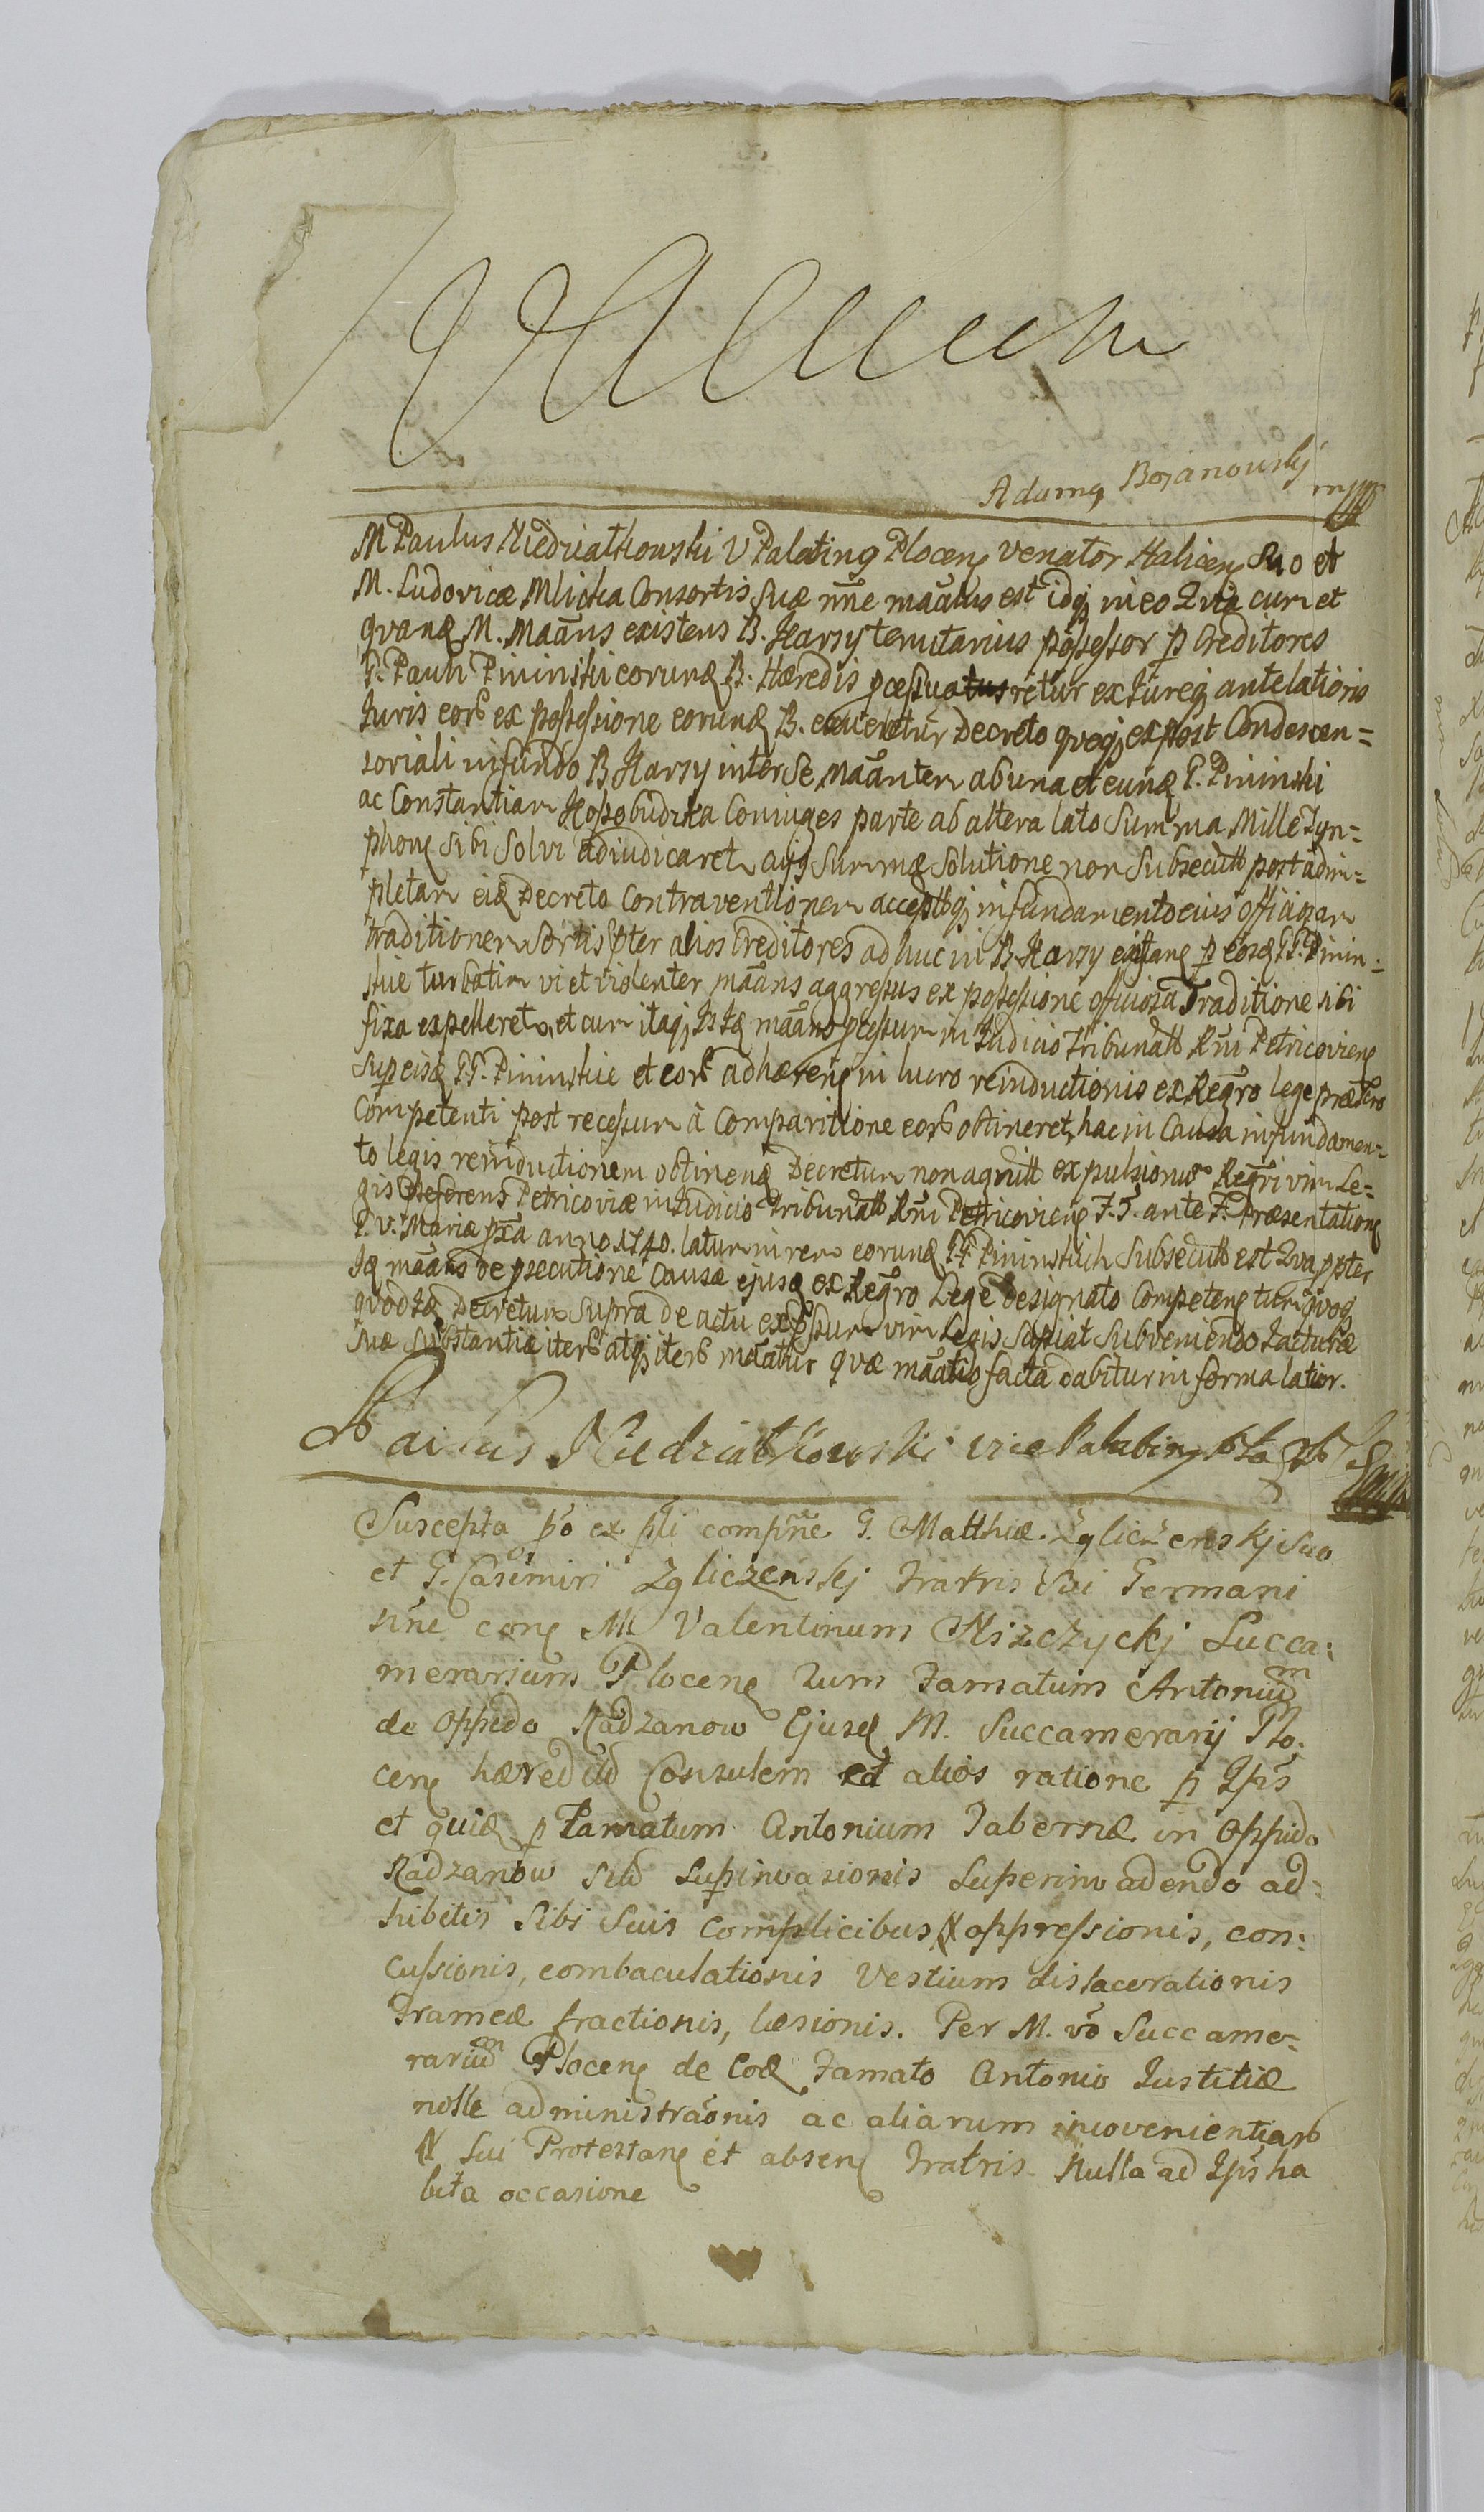 Adamq Bojanowskj mpp
M Paulus Niedziałkowski V Palatinq Plocenę venator Halicenę Suo et
M. Ludovicæ Mlicka Consortis Suæ nñe maãtus est idq in eo Qvia cum et
qvanq M. Maãns existens B. Harsy tenutarius possessor p Creditores
G. Pauli Pininski eorunq B. Hæredis pcessuatus retur ex Iureq antelationis
Iuris eorb ex possessione eorunq B. exueretur Decreto qvoq expost Condescen=
soriali in fundo B Harsy inter Se maãnten ab una et eunq G. Pininski
ac Constantiam Kossobudzka Coniuges parte ab altera lato Summa Mille Tyn=
phonę sibi solvi adiudicaret, cujs Summæ Solutione non Subsecutt post adim=
pletam eiq Decreto Contraventionem acceptbq in fundamento eius officiosam
traditionem Sortis pter alios Creditores ad huc in B Harsy extanę p eosq GG. Pinin=
skie turbatim vi et violenter maãns aggressus ex possessione officiosa Traditione sibi
fixa expelleret, et cum itaq Isq maãns pcessum in Iudicio Tribunatt Rñi Petricovienę
Sup eisq GG. Pininskie et eorb adhærenę in lucro reinductionis ex Regro lege præscro
Competenti post recessum à Comparitione eorb obtineret, hac in Causa in fundamen=
to legis reinductionem obtinenę Decretum non agnitt expulsionis Regri vim Le=
gis Deferens Petricoviæ in Iudicio Tribunatt Rñi Petricovienę F.F. ante F. Præsentationę
B. V. Mariæ pxa anno 1740. latum in rem eorunq GG Pininskich Subsecutt est Qvapter
Iq maãns de psecutione Causæ ejusq ex Regro Lege designato Competenę tum qvoq
qvod Iq Decretum Supra de actu expssum vim Legis Sapiat Subveniendo Iacturæ
Suæ Substantiæ iterb atq iterb maãtur qvæ maãtio facta dabitur in forma latior.
Paulus Niedziałkowski vice Palatinq Plo
Suscepta po ex pli compñe G. Matthiæ Zgliczenskj Suo
et G. Casimiri Zgliczenskj Fratris Sui Germani
nñe conę M Valentinum Niszczyckj Succa:
merarium Plocenę Tum Famatum Antonium
de Oppido Radzanow Ejusq M. Succamerarij Plo:
cenę hæred Consulem et alios ratione p Ipš
et quiq p Famatum Antonium Tabernæ in Oppido
Radzanow Superinvasionis Superinvadendo ad=
hibitis Sibi Suis Complicibus oppressionis, con:
cussionis, combaculationis Vestium dislacerationis
Frameæ fractionis, læsionis. Per M. vo Succame=
rarium Plocenę de Eoq Famato Antonio Iustitiæ
nolle administraonis ac aliarum inovenientiarb
Sui Protestanę et absenę Fratris Nulla ad Ipš ha
bita occasione